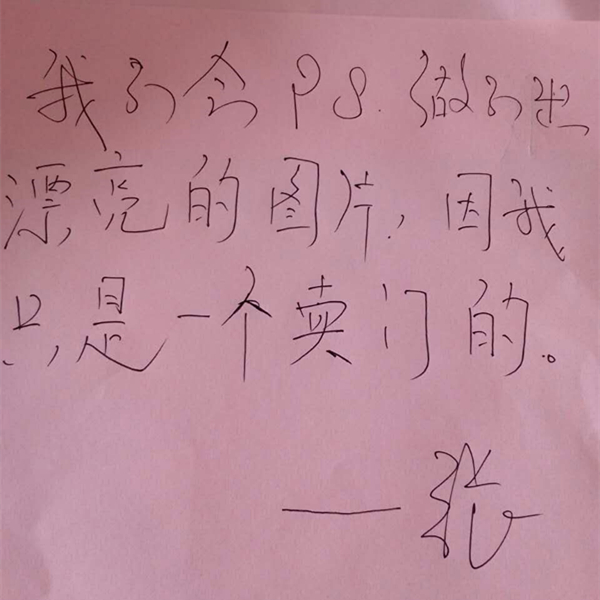 我不会PS.做不出
漂亮的图片,因我
只是一个卖门的。
——张